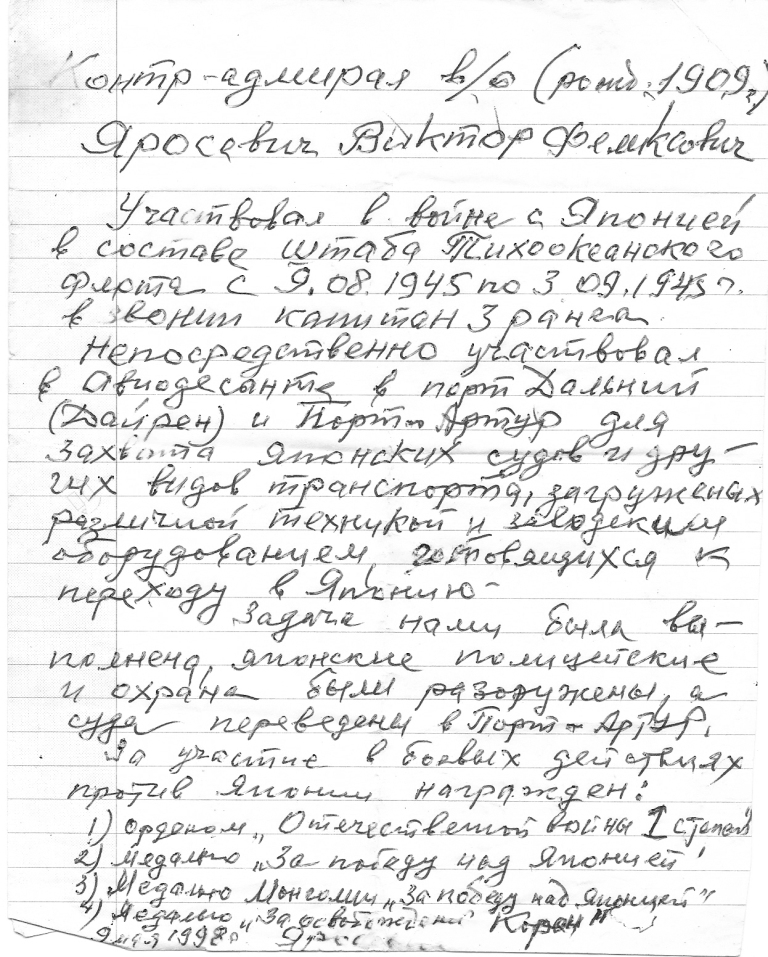 Контр-адмирал в/о (рожд. 1909г.)
Яросевич Виктор Феликсович
Участвовал в войне с Японией
в составе штаба Тихоокеанского
флота с 9.08.1945 по 3 09.1945 г.
в звании капитан 3 ранга.
Непосредственно участвовал
в авиодесанте в порт Дальний
(Дайрен) и Порт-Артур для
захвата японских судов и дру-
гих видов транспорта, загруженых
различной техникой и заводским
оборудованием, готовящихся к
переходу в Японию-
Задача нами была вы-
полнена, японские полицейские
и охрана были разоружены, а
суда переведены в Порт-Артур.
За участие в боевых действиях
против Японии награжден:
1) орденом „Отечественной войны 1 степени
2) Медалью „За победу над Японией"
3) Медалью Монголии „За победу над Японией"
4) Медалью „За освобождение Кореи"
9 мая 1998г